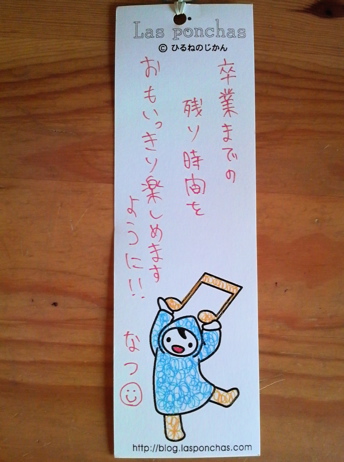 Las ponchas
© ひるねのじかん
卒業までの
残り時間を
おもいっきり楽しめます
ように!!
なつ
http://blog.lasponchas.com